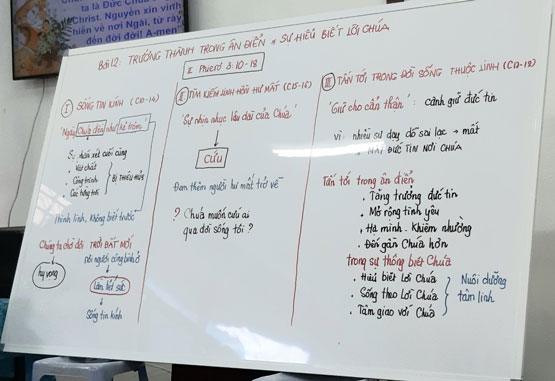 ta là Đức Chúa
Christ. Nguyện xin vinh
hiển về nơi Ngài, từ rày
đến đời đời! A-men
Bài 12: TRƯỞNG THÀNH TRONG ÂN ĐIỂN & SỰ HIỂU BIẾT LỜI CHÚA
II Phierơ 3:10-18
I SỐNG TIN KÍNH (C10-14)
"Ngày Chúa đến như kẻ trộm"
Sự phán xét cuối cùng
. Vật chất
. Công trình
. Các tầng trời
BỊ THIÊU HỦY
thình lình, không biết trước
Chúng ta chờ đợi TRỜI ĐẤT MỚI
nơi người công bình ở
hy vọng
Làm hết sức
Sống tin kính
II TÌM KIẾM LINH HỒN HƯ MẤT (C15-16)
"Sự nhịn nhục lâu dài của Chúa"
CỨU
Đem thêm người hư mất trở về
? Chúa muốn cứu ai
qua đời sống tôi ?
III TẤN TỚI TRONG ĐỜI SỐNG THUỘC LINH (C17-18)
'Giữ cho cẩn thận' : canh giữ đức tin
vì nhiều sự dạy dỗ sai lạc → mất
ĐỨC TIN NƠI CHÚA
Tấn tới trong ân điển
. Tăng trưởng đức tin
. Mở rộng tình yêu
. Hạ mình. Khiêm nhường
. Đến gần Chúa hơn
trong sự thông biết Chúa
. Hiểu biết Lời Chúa
. Sống theo Lời Chúa
. Tâm giao với Chúa
Nuôi dưỡng
tâm linh